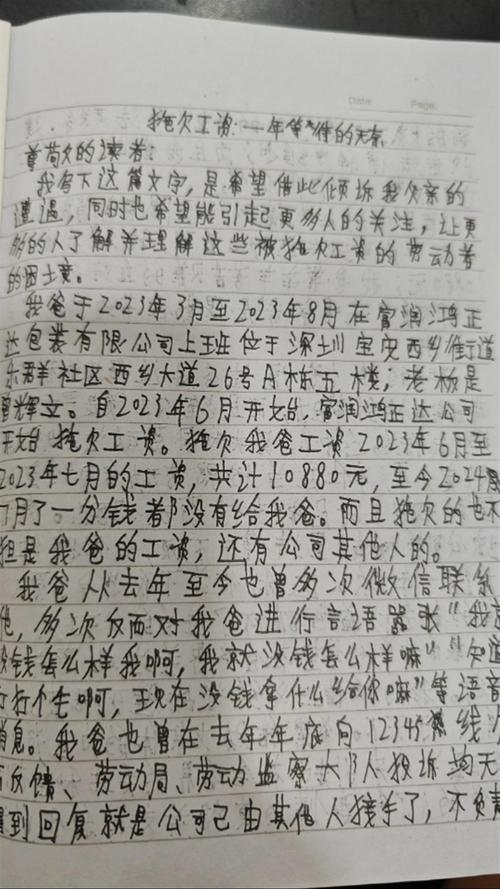 Date. Page.
拖欠工资:一年等待的无奈
尊敬的读者:
我写下这篇文字,是希望借此倾诉我父亲的
遭遇,同时也希望能引起更多人的关注,让更
多的人了解并理解这些被拖欠工资的劳动者
的困境。
我爸于2023年3月至2023年8月在富润鸿正
达包装有限公司上班位于深圳宝安西乡街道
乐群社区西乡大道26号A栋五楼;老板是
曾辉文。自2023年6月开始,富润鸿正达公司
开始拖欠工资。拖欠我爸工资2023年6月至
2023年七月的工资,共计10880元,至今2024
7月了一分钱都没有给我爸。而且拖欠的也不
但是我爸的工资,还有公司其他人的。
我爸从去年至今也曾多次微信联系
他,多次反而对我爸进行言语嚣张“我
没钱怎么样我啊,我就没钱怎么样嘛”“知道
行个毛啊,现在没钱拿什么给你嘛”等语音
消息。我爸也曾在去年年底向12345热线
反馈、劳动局、劳动监察大队投诉均无
得到回复就是公司已由其他人接手了,不负责